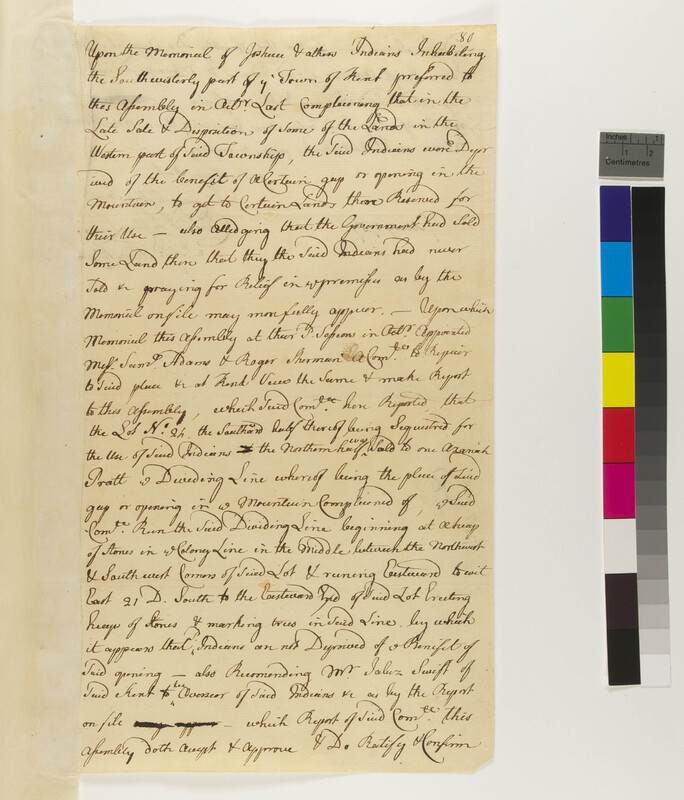 80
Upon the Memorial of Joshua & others Indians Inhabiting
the Southwesterly part of yͤ Town of Kent preferred to
this Assembly in Octʳ Last Complaining that in the
Late Sale & Disposition of Some of the Lands in the
Western part of Said Township, the Said Indians were Depr
ived of the benefit of a Certain gap or opening in the
Mountain, to get to Certain Lands there Reserved for
their Use — also alledging that the Government had Sold
Some Land there that they the Said Indians had never
Sold &c praying for Relief in yͤ premises as by the
Memorial on file may more fully appear. — Upon which
Memorial this Assembly at their Sᵈ Session in Octʳ Appointed
Messʳˢ Samˡˡ Adams & Roger Sherman a Comᵗᵉᵉ to Repair
to Said place &c at Kent View the Same & make Report
to this Assembly, which Said Comᵗᵉᵉ have Reported that
the Lot Nº 24 the Southard half thereof being Sequestred for
the Use of Said Indians & the Northern half was Sold to one Azariah
Pratt yͤ Dividing Line whereof being the place of Said
gap or opening in yͤ Mountain Complained of, yͤ Said
Comᵗᵉᵉ Run the Said Dividing Line beginning at a heap
of Stones in yͤ Colony Line in the Middle between the Northwest
& Southwest Corners of Said Lot & runing Eastward to wit
East 21 D. South to the Eastward End of Said Lot Erecting
heaps of Stones & marking trees in Said Line. by which
it appears that Indians are not Deprived of yͤ Benefit of
Said opening — also Recomending Mʳ Jabez Swift of
Said Kent to be Overseer of Said Indians &c as by the Report
on file — which Report of Said Comᵗᵉᵉ this
Assembly doth accept & Approve & Do Ratify & Confirm
Inches
1
Centimetres
1
2